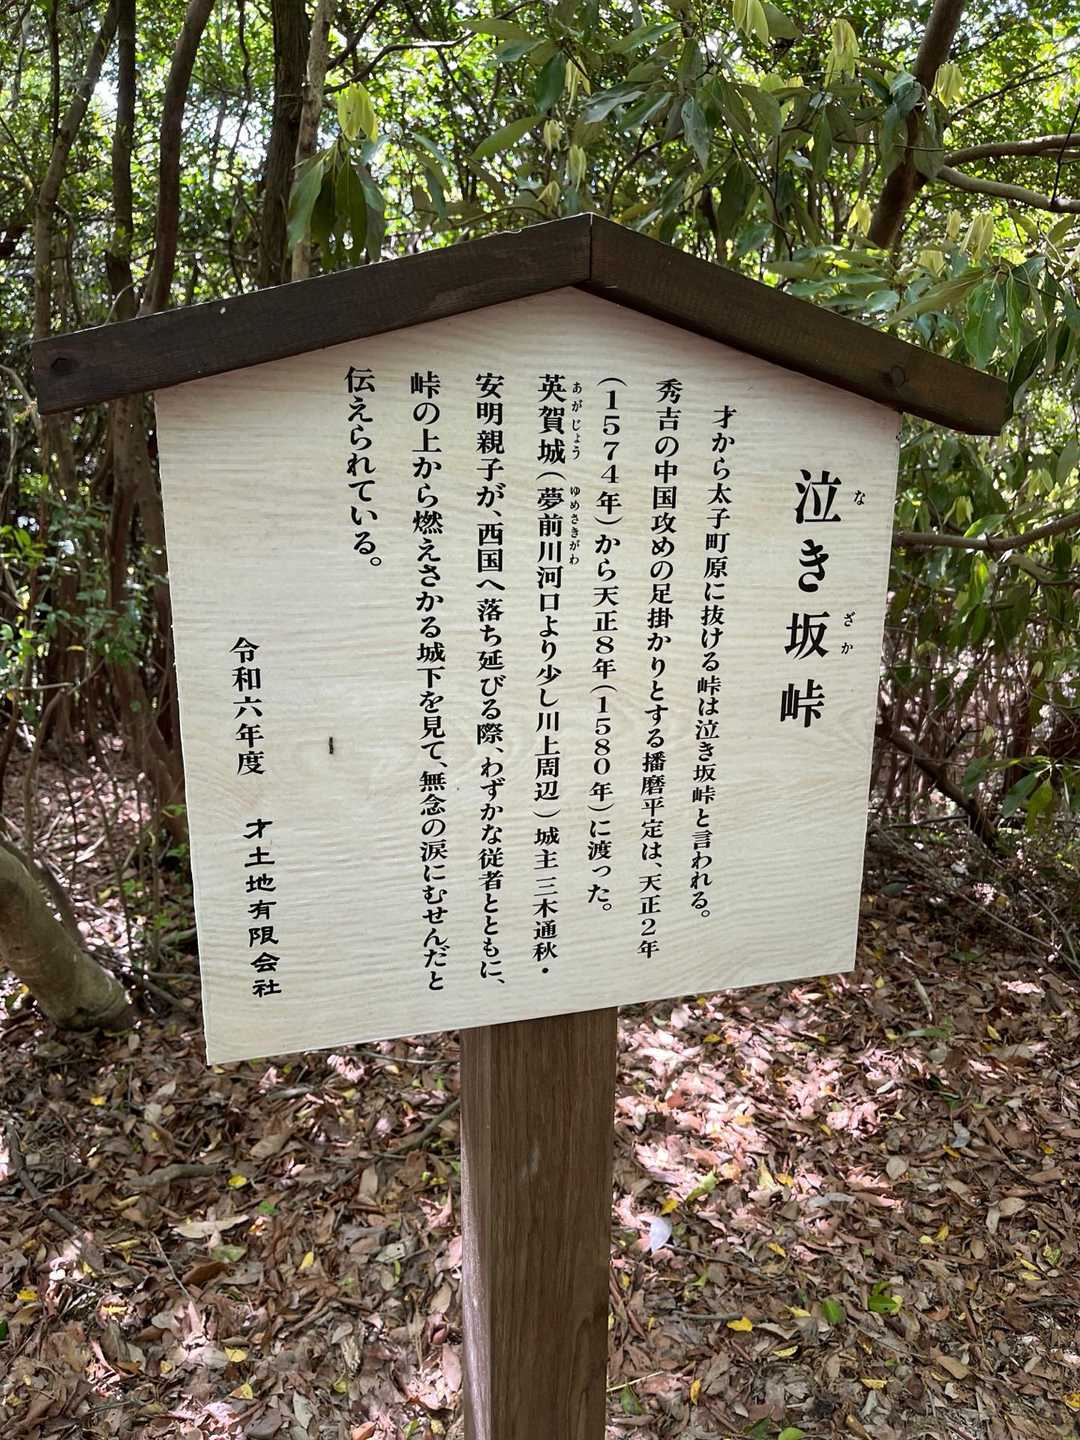 泣き坂峠
なざか
才から太子町原に抜ける峠は泣き坂峠と言われる。
秀吉の中国攻めの足掛かりとする播磨平定は、天正2年
(1574年)から天正8年(1580年)に渡った。
英賀城(夢前川河口より少し川上周辺)城主三木通秋・
あがじょう ゆめさきがわ
安明親子が、西国へ落ち延びる際、わずかな従者とともに、
峠の上から燃えさかる城下を見て、無念の涙にむせんだと
伝えられている。
令和六年度 才土地有限会社